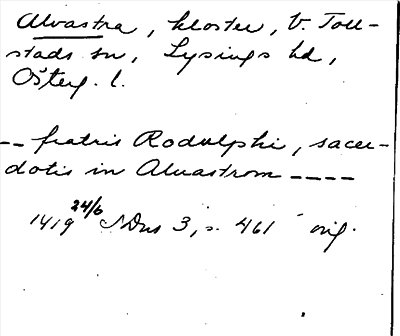 Alvastra, kloster, V. Toll-
stads sn, Lysings hd,
Österg. l.
-- fratris Rodulphi, sacer-
dotis in Aluastrom ----
1419 24/6 SDns 3, s. 461 orig.